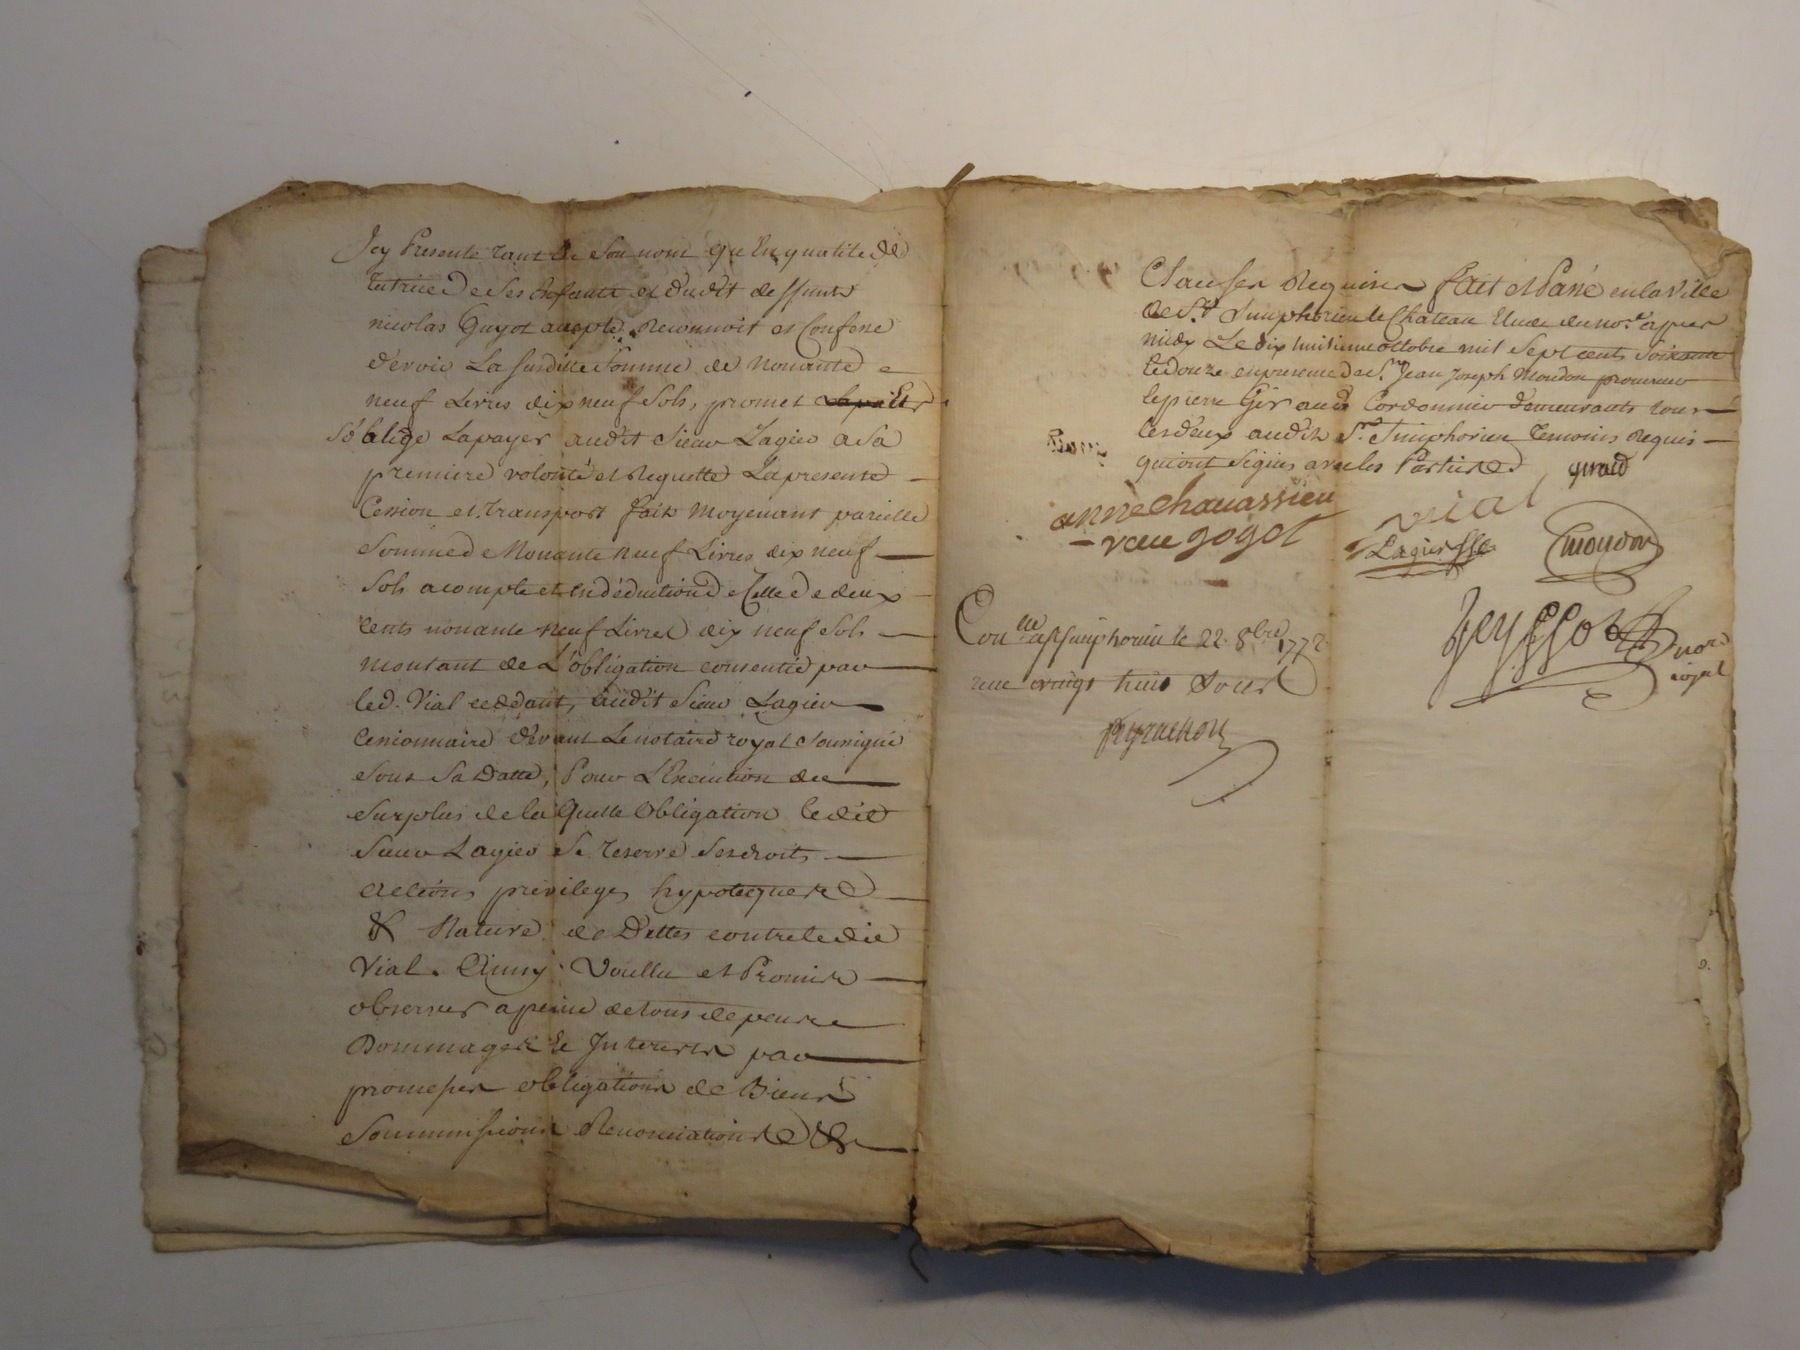 Icy Presente tant de Son nom que En qualité de
tutrice De Ses Enfants et dudit deffunt
nicolas Guyot accepte Reconnoit et Confesse
devoir La Susditte Somme de Nonante
neuf Livres dix neuf Sols, promet et
S'oblige Lapayer audit Sieur Lagier a Sa
premiere volonté et Requette La presente
Cession et transport fait Moyenant pareille
Somme de Nonante neuf Livres dix neuf
Sols acompte et En déduction de Celle de deux
cents nonante neuf Livres dix neuf Sols
montant de L'obligation consentie par
led. Vial ceddant, audit Sieur Lagier
Cessionnaire devant Le notaire royal Soussigné
Sous Sa Datte, Pour L'Execution du
Surplus de la Quelle obligation ledit
Sieur Lagier Se reserve Ses droits
actions privileges hypotecques
& Nature de Dettes contre ledit
Vial. Ainsy Voullu et Promis
observer a peine de tous depens
Dommages et Interests par
promesses obligations de Biens
Soummissions Renonciations &
Clauses Requises fait et Passé en la Ville
de St. Simphorien le Chateau Etude du nore. apres
midy Le dix huitieme octobre mil Sept cents Soixante
et douze en presence de Sr. Jean Joseph Moudon procureur
et pierre Giraud Cordonnier demeurants tous
les deux audit St. Simphorien temoins Requis
qui ont Signés avec les Parties giraud
anne chavassieu
veue gogot
vial
Lagier
Moudon
Peyssot nore
royal
Conlle a St Simphorien le 22. 8bre 1772
reçu vingt huit Sous
peyrachon